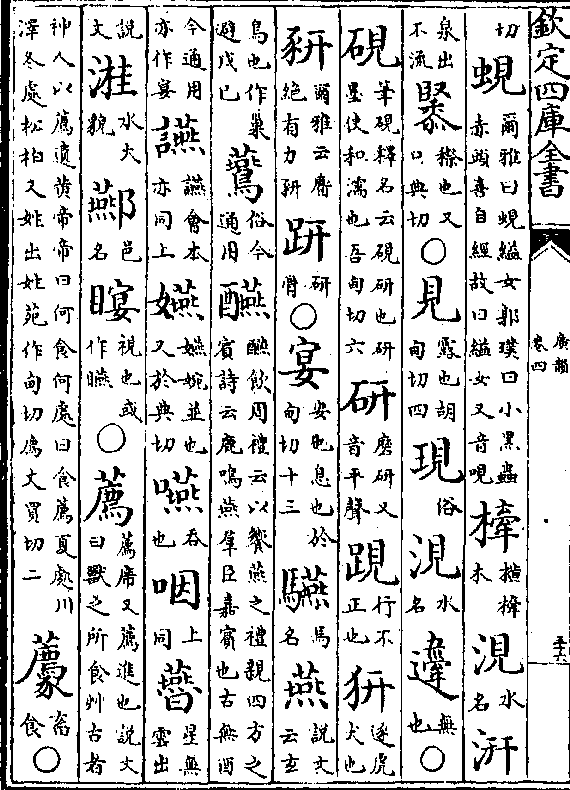 欽定四庫全書
廣韻
卷四
三十六
切蜆爾雅曰蜆縊女郭璞曰小黑蟲赤頭喜自經故曰縊女又音哯㯠橫㯠木涀水名汧
泉出不流䋆䋆也又口典切○見露也胡甸切四現俗涀水名邉無也○
硯筆硯釋名云硯研也研墨使和濡也吾甸切六研磨研又音平聲趼行不正也豣逐虎犬也
豜爾雅云麕絕有力豜趼研骨○宴安也息也於甸切十三驠馬名燕說文云玄
鳥也作巢避戊己鷰俗今通用醼醼飲周禮云以饗燕之禮親四方之賓詩云鹿鳴燕羣臣嘉賓也古無酉
今通用亦作宴讌讌會本亦同上嬿嬿婉並也又於典切嚥吞也咽上同㬫星無雲出
說文㳣水大貌酀邑名䁙視也或作矊○薦薦席又薦進也說文曰獸之所食艸古者
神人以薦遺黄帝帝曰何食何處曰食薦夏處川澤冬處松栢又姓出姓苑作甸切廌丈買切二䕪畜食○